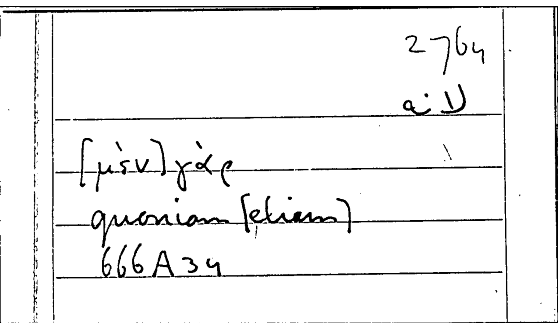 2764
a:ν
[μὲν] γὰρ
quoniam [etiam]
666A34